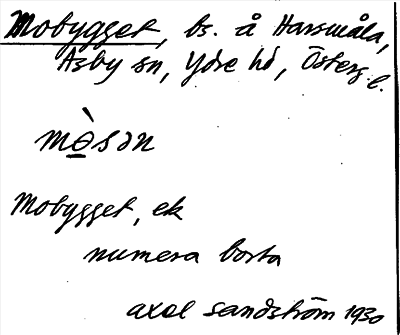 Mobygget, bs. å Harsmåla,
Asby sn, Ydre hd, Österg. l.
mò̲sən
Mobygget, ek
numera borta
Axel Sandström 1930